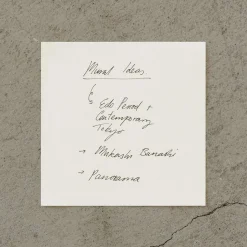 Mural Ideas
Edo Period +
Contemporary
Tokyo
→ Mukashi Banashi
→ Panorama